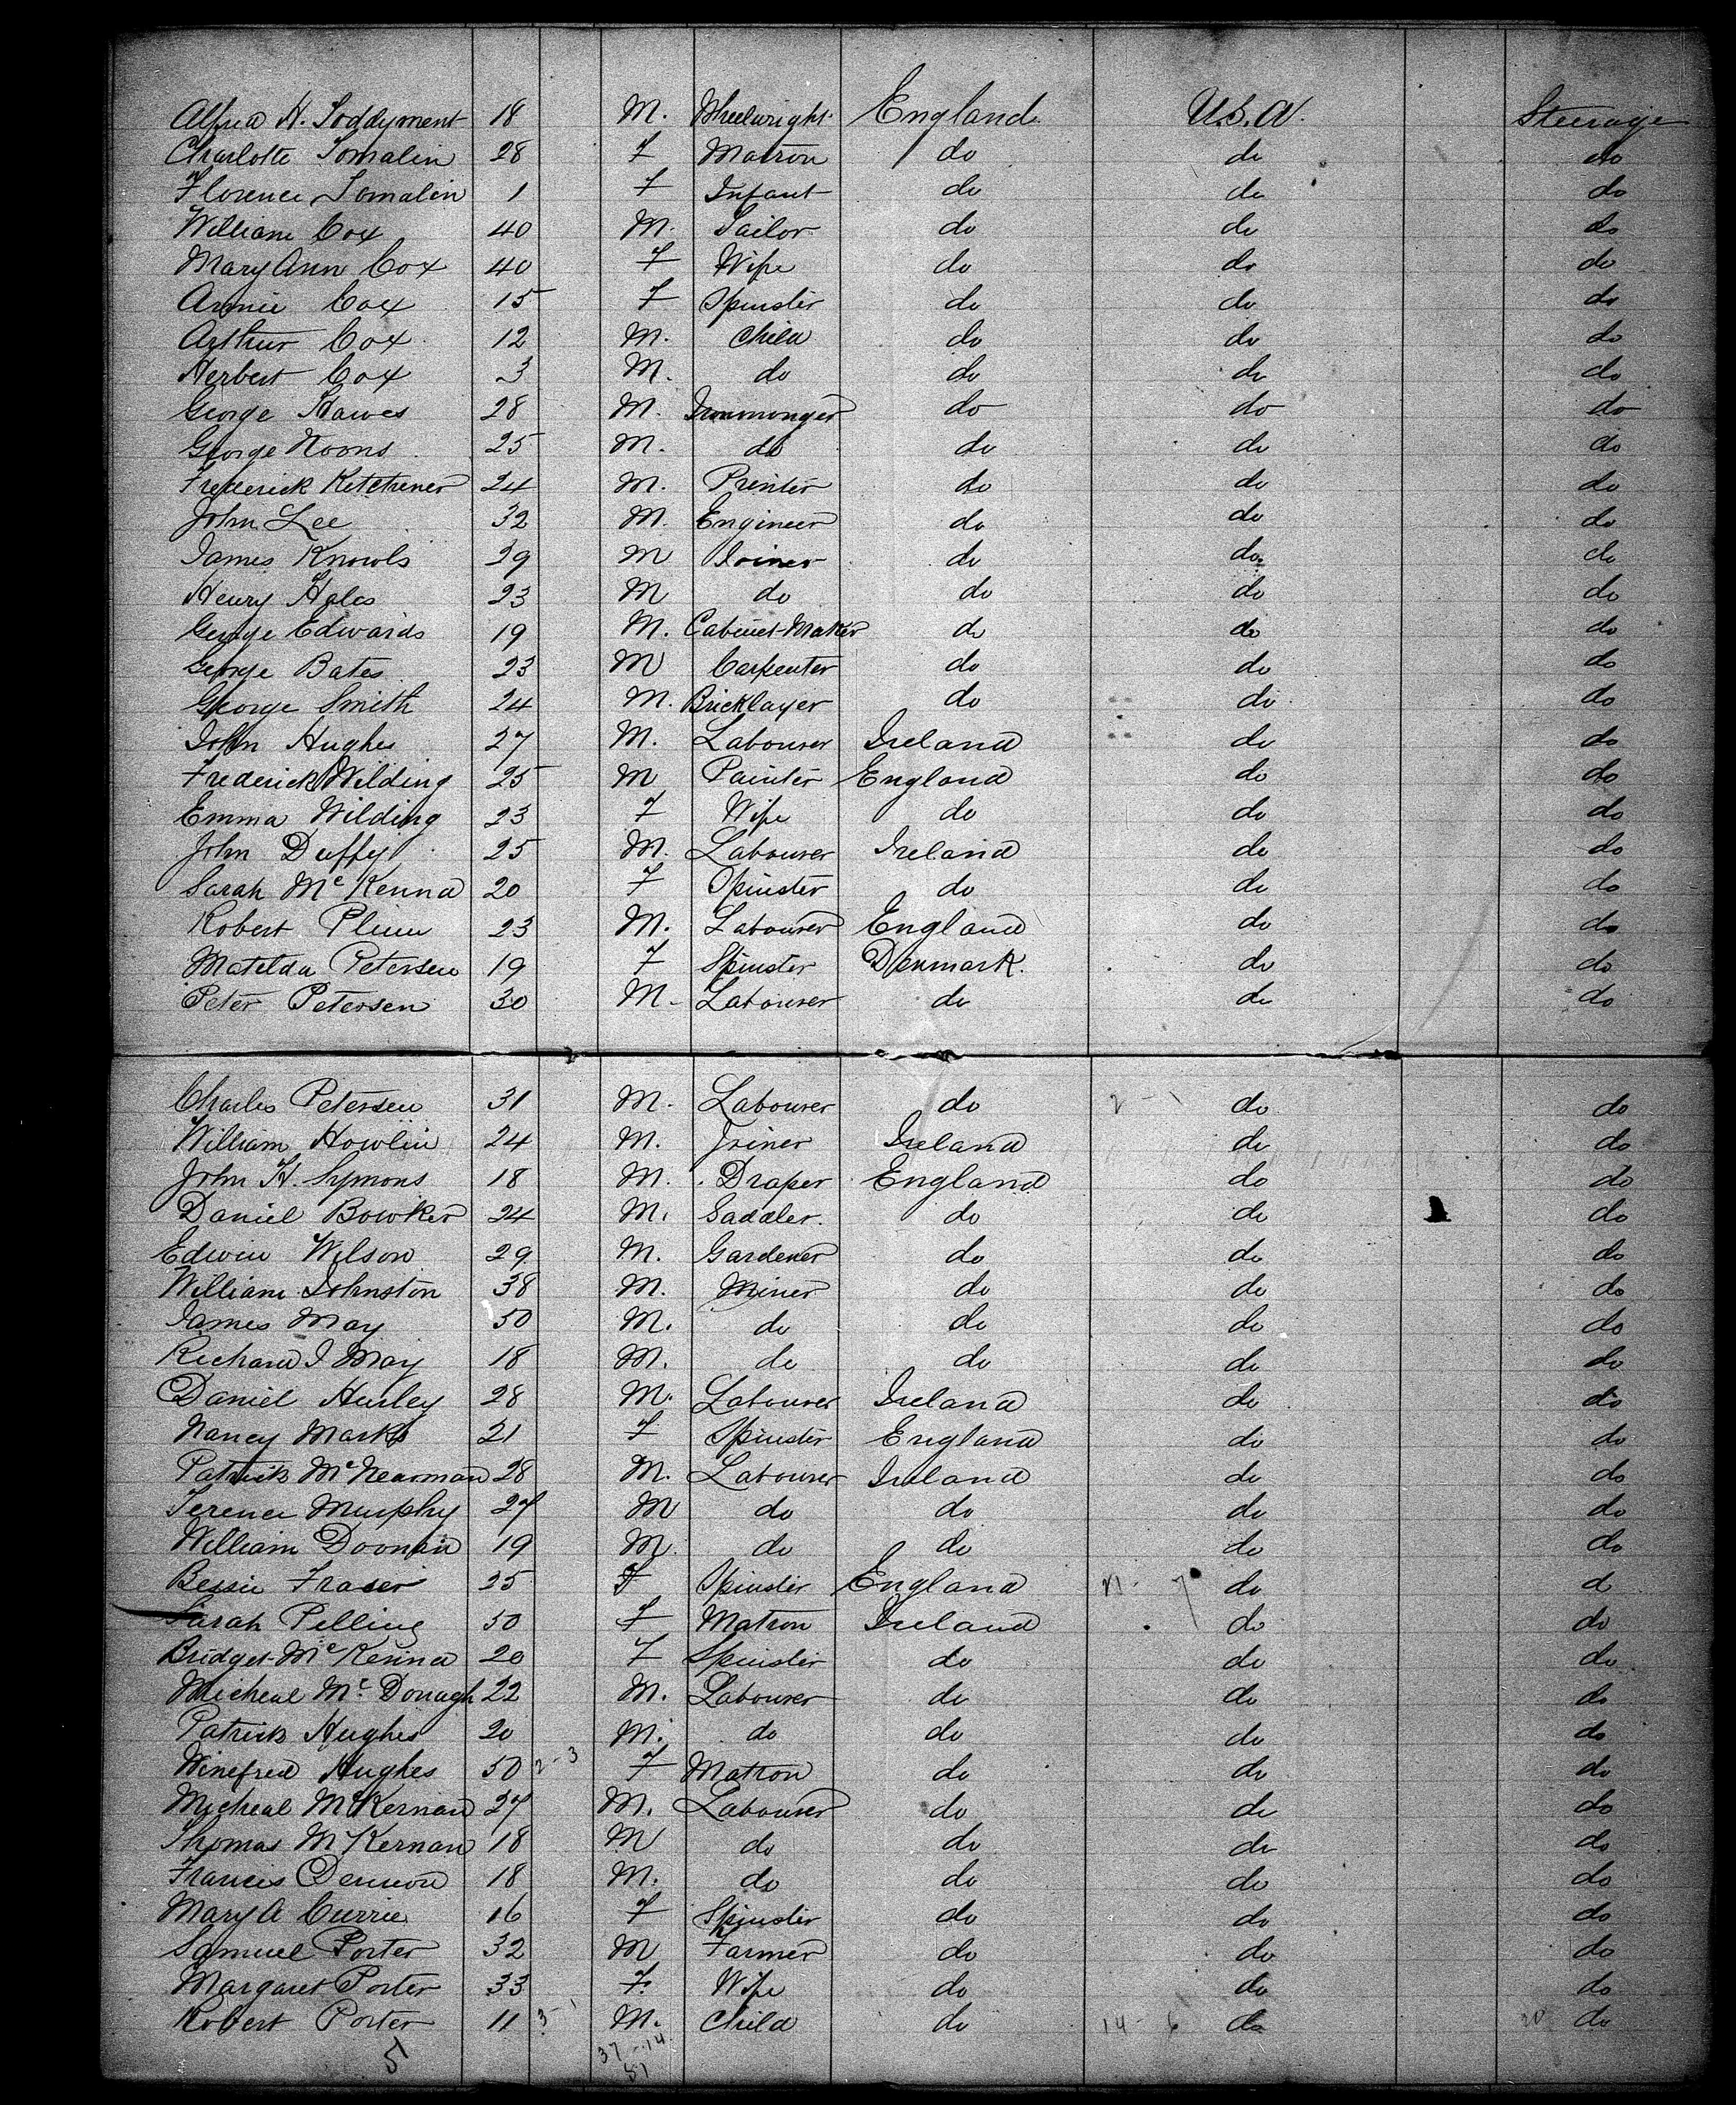 Alfred H. Soddyment 18 M. Wheelwright England U.S.A. Steerage
Charlotte Tomalin 28 F Matron do do do
Florence Tomalin 1 F Infant do do do
William Cox 40 M. Tailor do do do
Mary Ann Cox 40 F Wife do do do
Annie Cox 15 F Spinster do do do
Arthur Cox 12 M. Child do do do
Herbert Cox 3 M. do do do do
George Hawes 28 M. Ironmonger do do do
George Noons 25 M. do do do do
Frederick Kitchener 24 M. Printer do do do
John Lee 32 M. Engineer do do do
James Knowls 29 M Joiner do do do
Henry Hales 23 M do do do do
George Edwards 19 M. Cabinet-Maker do do do
George Bates 23 M Carpenter do do do
George Smith 24 M. Bricklayer do do do
John Hughes 27 M. Labourer Ireland do do
Frederick Wilding 25 M Painter England do do
Emma Wilding 23 F Wife do do do
John Duffy 25 M. Labourer Ireland do do
Sarah McKenna 20 F Spinster do do do
Robert 23 M. Labourer England do do
Matilda Petersen 19 F Spinster Denmark. do do
Peter Petersen 30 M. Labourer do do do
Charles Petersen 31 M. Labourer do 2 - 1 do do
William Howlin 24 M. Joiner Ireland do do
John H. Symons 18 M. Draper England do do
Daniel Bowker 24 M. Saddler. do do do
Edwin Wilson 29 M. Gardener do do do
William Johnston 38 M. Miner do do do
James May 50 M. do do do do
Richard J May 18 M. do do do do
Daniel Hurley 28 M. Labourer Ireland do do
Nancy Marks 21 F Spinster England do do
Patrick McNearman 28 M. Labourer Ireland do do
Terence Murphy 27 M do do do do
William Doonan 19 M. do do do do
Bessie Fraser 25 F Spinster England do d
Sarah Pelling 50 F Matron Ireland do do
Bridget McKenna 20 F Spinster do do do
Micheal Mc Donagh 22 M. Labourer do do do
Patrick Hughes 20 M. do do do do
Winefred Hughes 50 2 - 3 F Matron do do do
Micheal McKernan 27 M. Labourer do do do
Thomas McKernan 18 M do do do do
Francis 18 M. do do do do
Mary A Currie 16 F Spinster do do do
Samuel Porter 32 M Farmer do do do
Margaret Porter 33 F. Wife do do do
Robert Porter 11 3 - 1 M. Child do 14 - 6 do 20 do
51 37 - 14
51